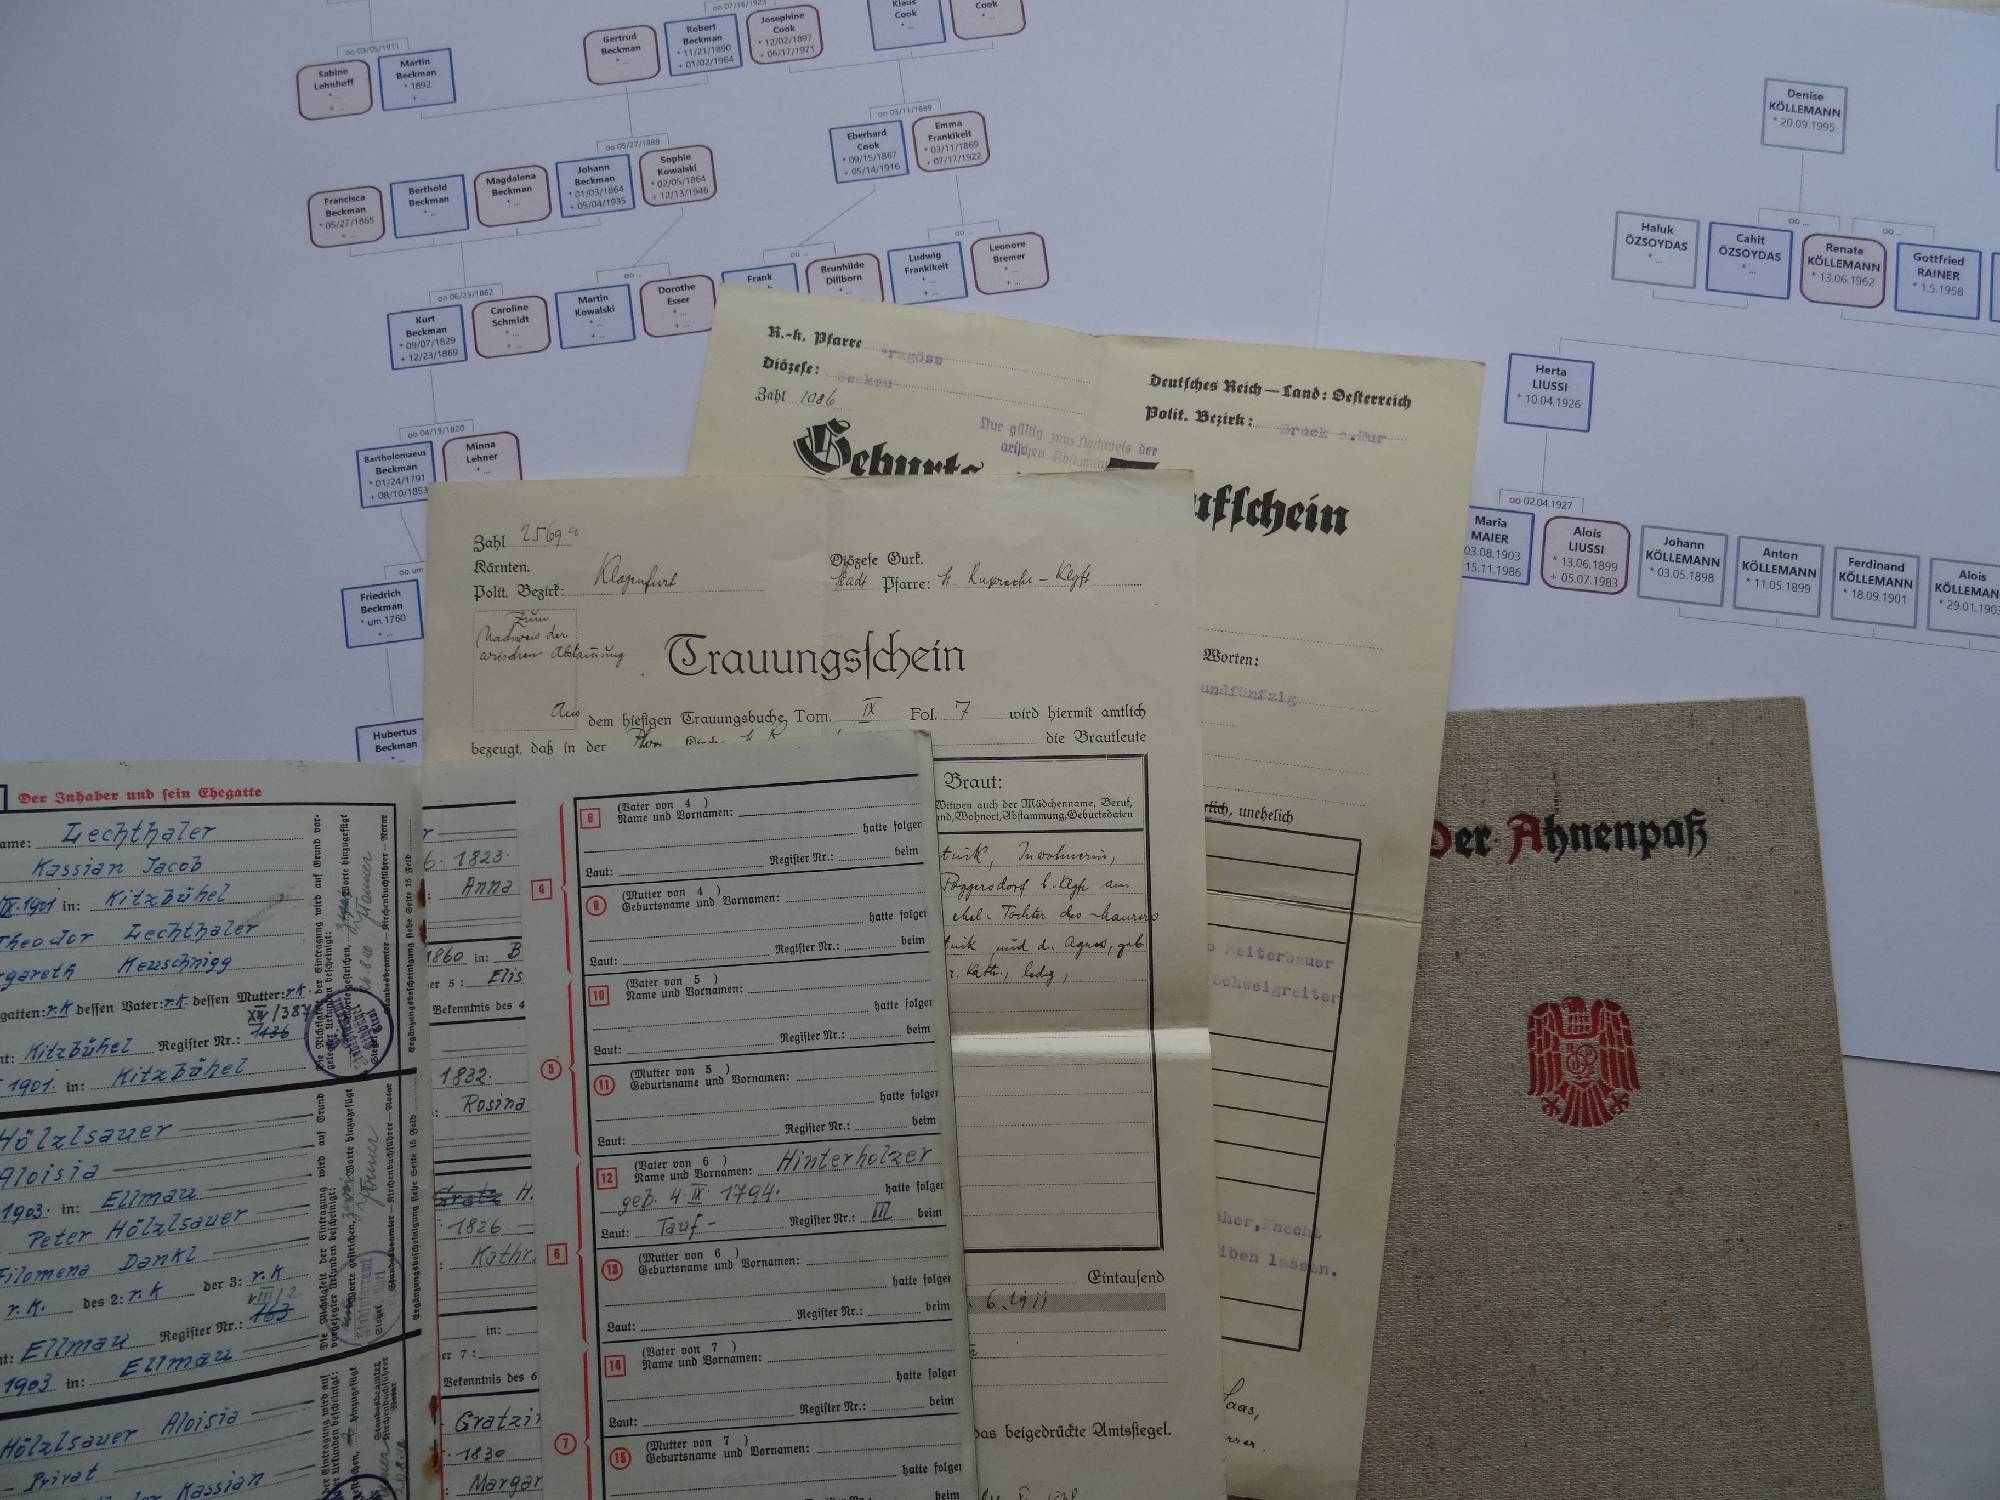 oo 03/05/1911
Sabine
Lehnhoff
* ...
+ ...
Martin
Beckman
* 1892
+ ...
oo 07/16/1923
Gertrud
Beckman
* ...
Robert
Beckman
* 11/21/1890
+ 01/02/1964
Josephine
Cook
* 12/02/1897
+ 06/17/1971
Klaus
Cook
* ...
Cook
* ...
oo 05/27/1889
Francisca
Beckman
* 05/27/1865
+ ...
Berthold
Beckman
* ...
Magdalena
Beckman
* ...
Johann
Beckman
* 01/03/1864
+ 05/04/1935
Sophie
Kowalski
* 02/05/1864
+ 12/13/1946
oo 03/11/1889
Eberhard
Cook
* 09/15/1867
+ 05/14/1916
Emma
Frankikeit
* 03/11/1869
+ 07/17/1922
oo 06/23/1862
Kurt
Beckman
* 09/07/1829
+ 12/23/1869
Caroline
Schmidt
* ...
+ ...
oo ...
Martin
Kowalski
* ...
+ ...
Dorothe
Esser
* ...
+ ...
oo ...
Frank
Brunhilde
Dillborn
* ...
oo ...
Ludwig
Frankikeit
* ...
+ ...
Leonore
Bremer
* ...
+ ...
oo 04/19/1820
Bartholomaeus
Beckman
* 01/24/1791
+ 08/10/1853
Minna
Lehner
* ...
oo um
Friedrich
Beckman
* um 1760
+ ...
Hubertus
Beckman
Denise
KÖLLEMANN
* 20.09.1995
oo ...
oo ...
Haluk
ÖZSOYDAS
* ...
Cahit
ÖZSOYDAS
* ...
Renate
KÖLLEMANN
* 13.06.1962
Gottfried
RAINER
* 1.5.1958
Herta
LIUSSI
* 10.04.1926
oo 02.04.1927
Maria
MAIER
03.08.1903
15.11.1986
Alois
LIUSSI
* 13.06.1899
+ 05.07.1983
Johann
KÖLLEMANN
* 03.05.1898
Anton
KÖLLEMANN
* 11.05.1899
Ferdinand
KÖLLEMANN
* 18.09.1901
Alois
KÖLLEMAN
* 29.01.1903
R.-k. Pfarre Tragöss
Diözese: Seckau
Zahl 1086
Deutsches Reich — Land: Oesterreich
Polit. Bezirk: Bruck a. Mur
Nur gültig zum Nachweis der
arischen
Geburts
ufschein
Worten:
undfünfzig
unehelich
Reiterbauer
Schweigreiter
Knecht
iben lassen.
Zahl 2569
Kärnten.
Polit. Bezirk: Klagenfurt
Diözese Gurk.
Stadt Pfarre: St. Ruprecht – Klgft
Zum
Nachweis der
arischen Abstammung
Trauungsschein
Aus dem hiesigen Trauungsbuche, Tom. IX Fol. 7 wird hiermit amtlich
bezeugt, daß in der
die Brautleute
Braut:
Witwen auch der Mädchenname, Beruf,
nd, Wohnort, Abstammung, Geburtsdaten
Poggersdorf b. Klgft
ehel. Tochter des Maurers
und d. Agnes, geb.
Kath., ledig,
Eintausend
6. 1911
das beigedrückte Amtssiegel.
Der Ahnenpaß
Der Inhaber und sein Ehegatte
ame: Lechthaler
Kassian Jacob
IX. 1901 in: Kitzbühel
Theodor Lechthaler
rgareth Keuschnigg
gatten: r.k dessen Vater: r.k. dessen Mutter: r.k.
XII/387
nt: Kitzbühel Register Nr.: 1136
1901. in: Kitzbühel
Hölzlsauer
Aloisia
1903. in: Ellmau
Peter Hölzlsauer
Filomena Dankl
r.k. des 2: r.k der 3: r.k
VIII/2
nt: Ellmau Register Nr.: 163
1903 in: Ellmau
Hölzlsauer Aloisia
Privat
Kassian
6. 1823.
Anna
1860 in: B
er 5: Elis
Bekenntnis des 4
1832.
Rosina
Gratz H.
1826
Kathr.
in:
er 7:
Bekenntnis des 6
Gratzin
1830
Margar
4
5
6
7
8 (Vater von 4 )
Name und Vornamen:
hatte folgen
Register Nr.: beim
Laut:
9 (Mutter von 4 )
Geburtsname und Vornamen:
hatte folgen
Register Nr.: beim
Laut:
10 (Vater von 5 )
Name und Vornamen:
hatte folgen
Register Nr.: beim
Laut:
11 (Mutter von 5 )
Geburtsname und Vornamen:
hatte folgen
Register Nr.: beim
Laut:
12 (Vater von 6 )
Name und Vornamen: Hinterholzer
geb. 4. IX. 1794. hatte folgen
Laut: Tauf- Register Nr.: III beim
13 (Mutter von 6 )
Geburtsname und Vornamen:
hatte folgen
Register Nr.: beim
Laut:
14 (Vater von 7 )
Name und Vornamen:
hatte folgen
Register Nr.: beim
Laut:
15 (Mutter von 7 )
Geburtsname und Vornamen:
hatte folgen
Register Nr.: beim